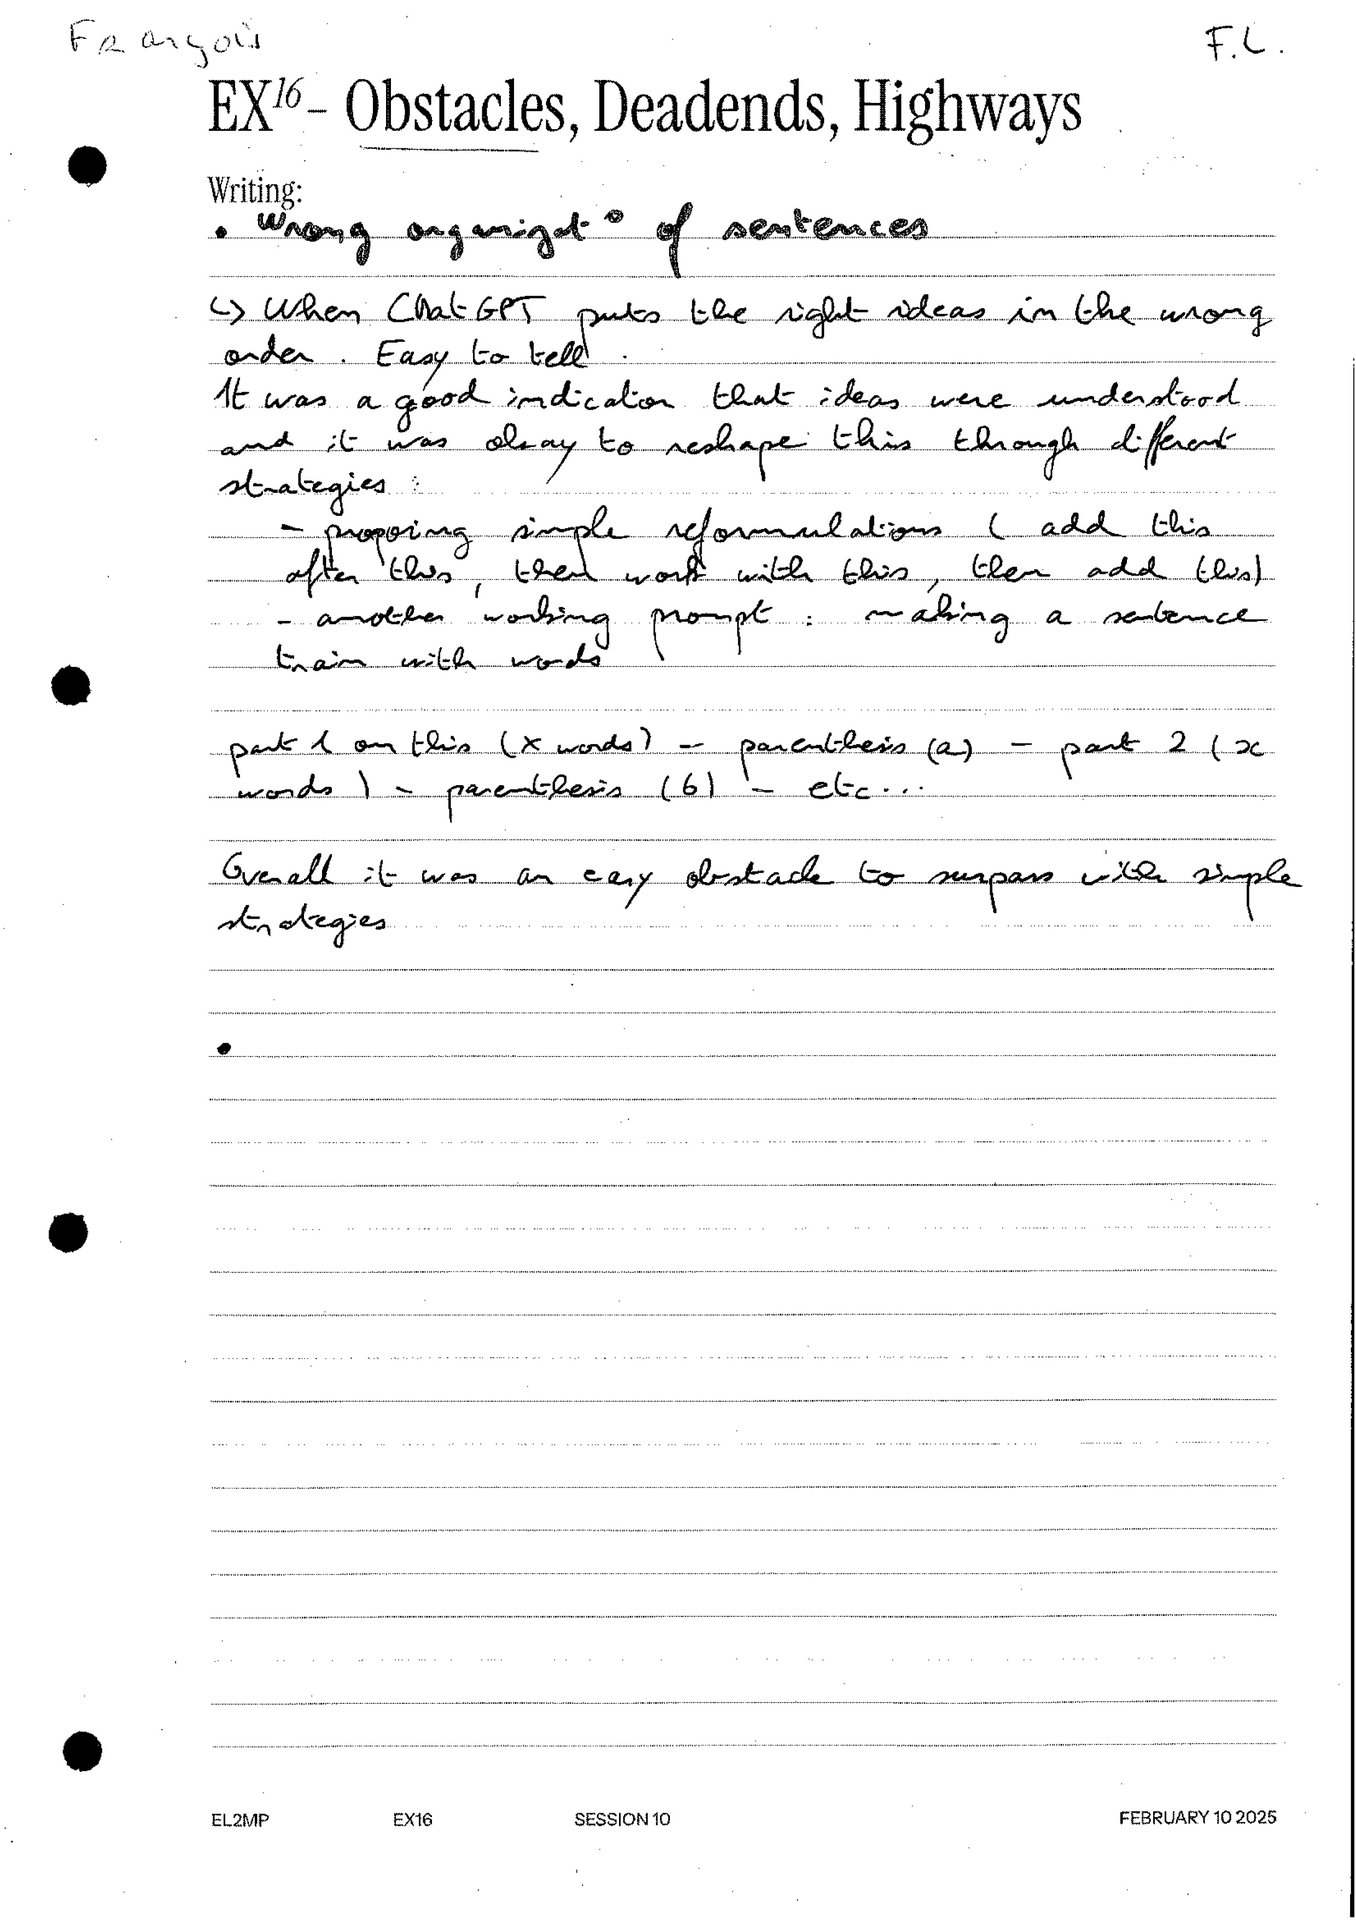 François
F.L.
EX16 – Obstacles, Deadends, Highways
Writing:
• Wrong organizat° of sentences
↳ When ChatGPT puts the right ideas in the wrong
order. Easy to tell.
It was a good indicator that ideas were understood
and it was okay to reshape this through different
strategies :
- proposing simple reformulations ( add this
after this, then work with this, then add this)
- another working prompt : making a sentence
train with words
part 1 on this (x words) - parenthesis (a) - part 2 (x
words) - parenthesis (b) - etc...
Overall it was an easy obstacle to surpass with simple
strategies
•
EL2MP EX16 SESSION 10 FEBRUARY 10 2025